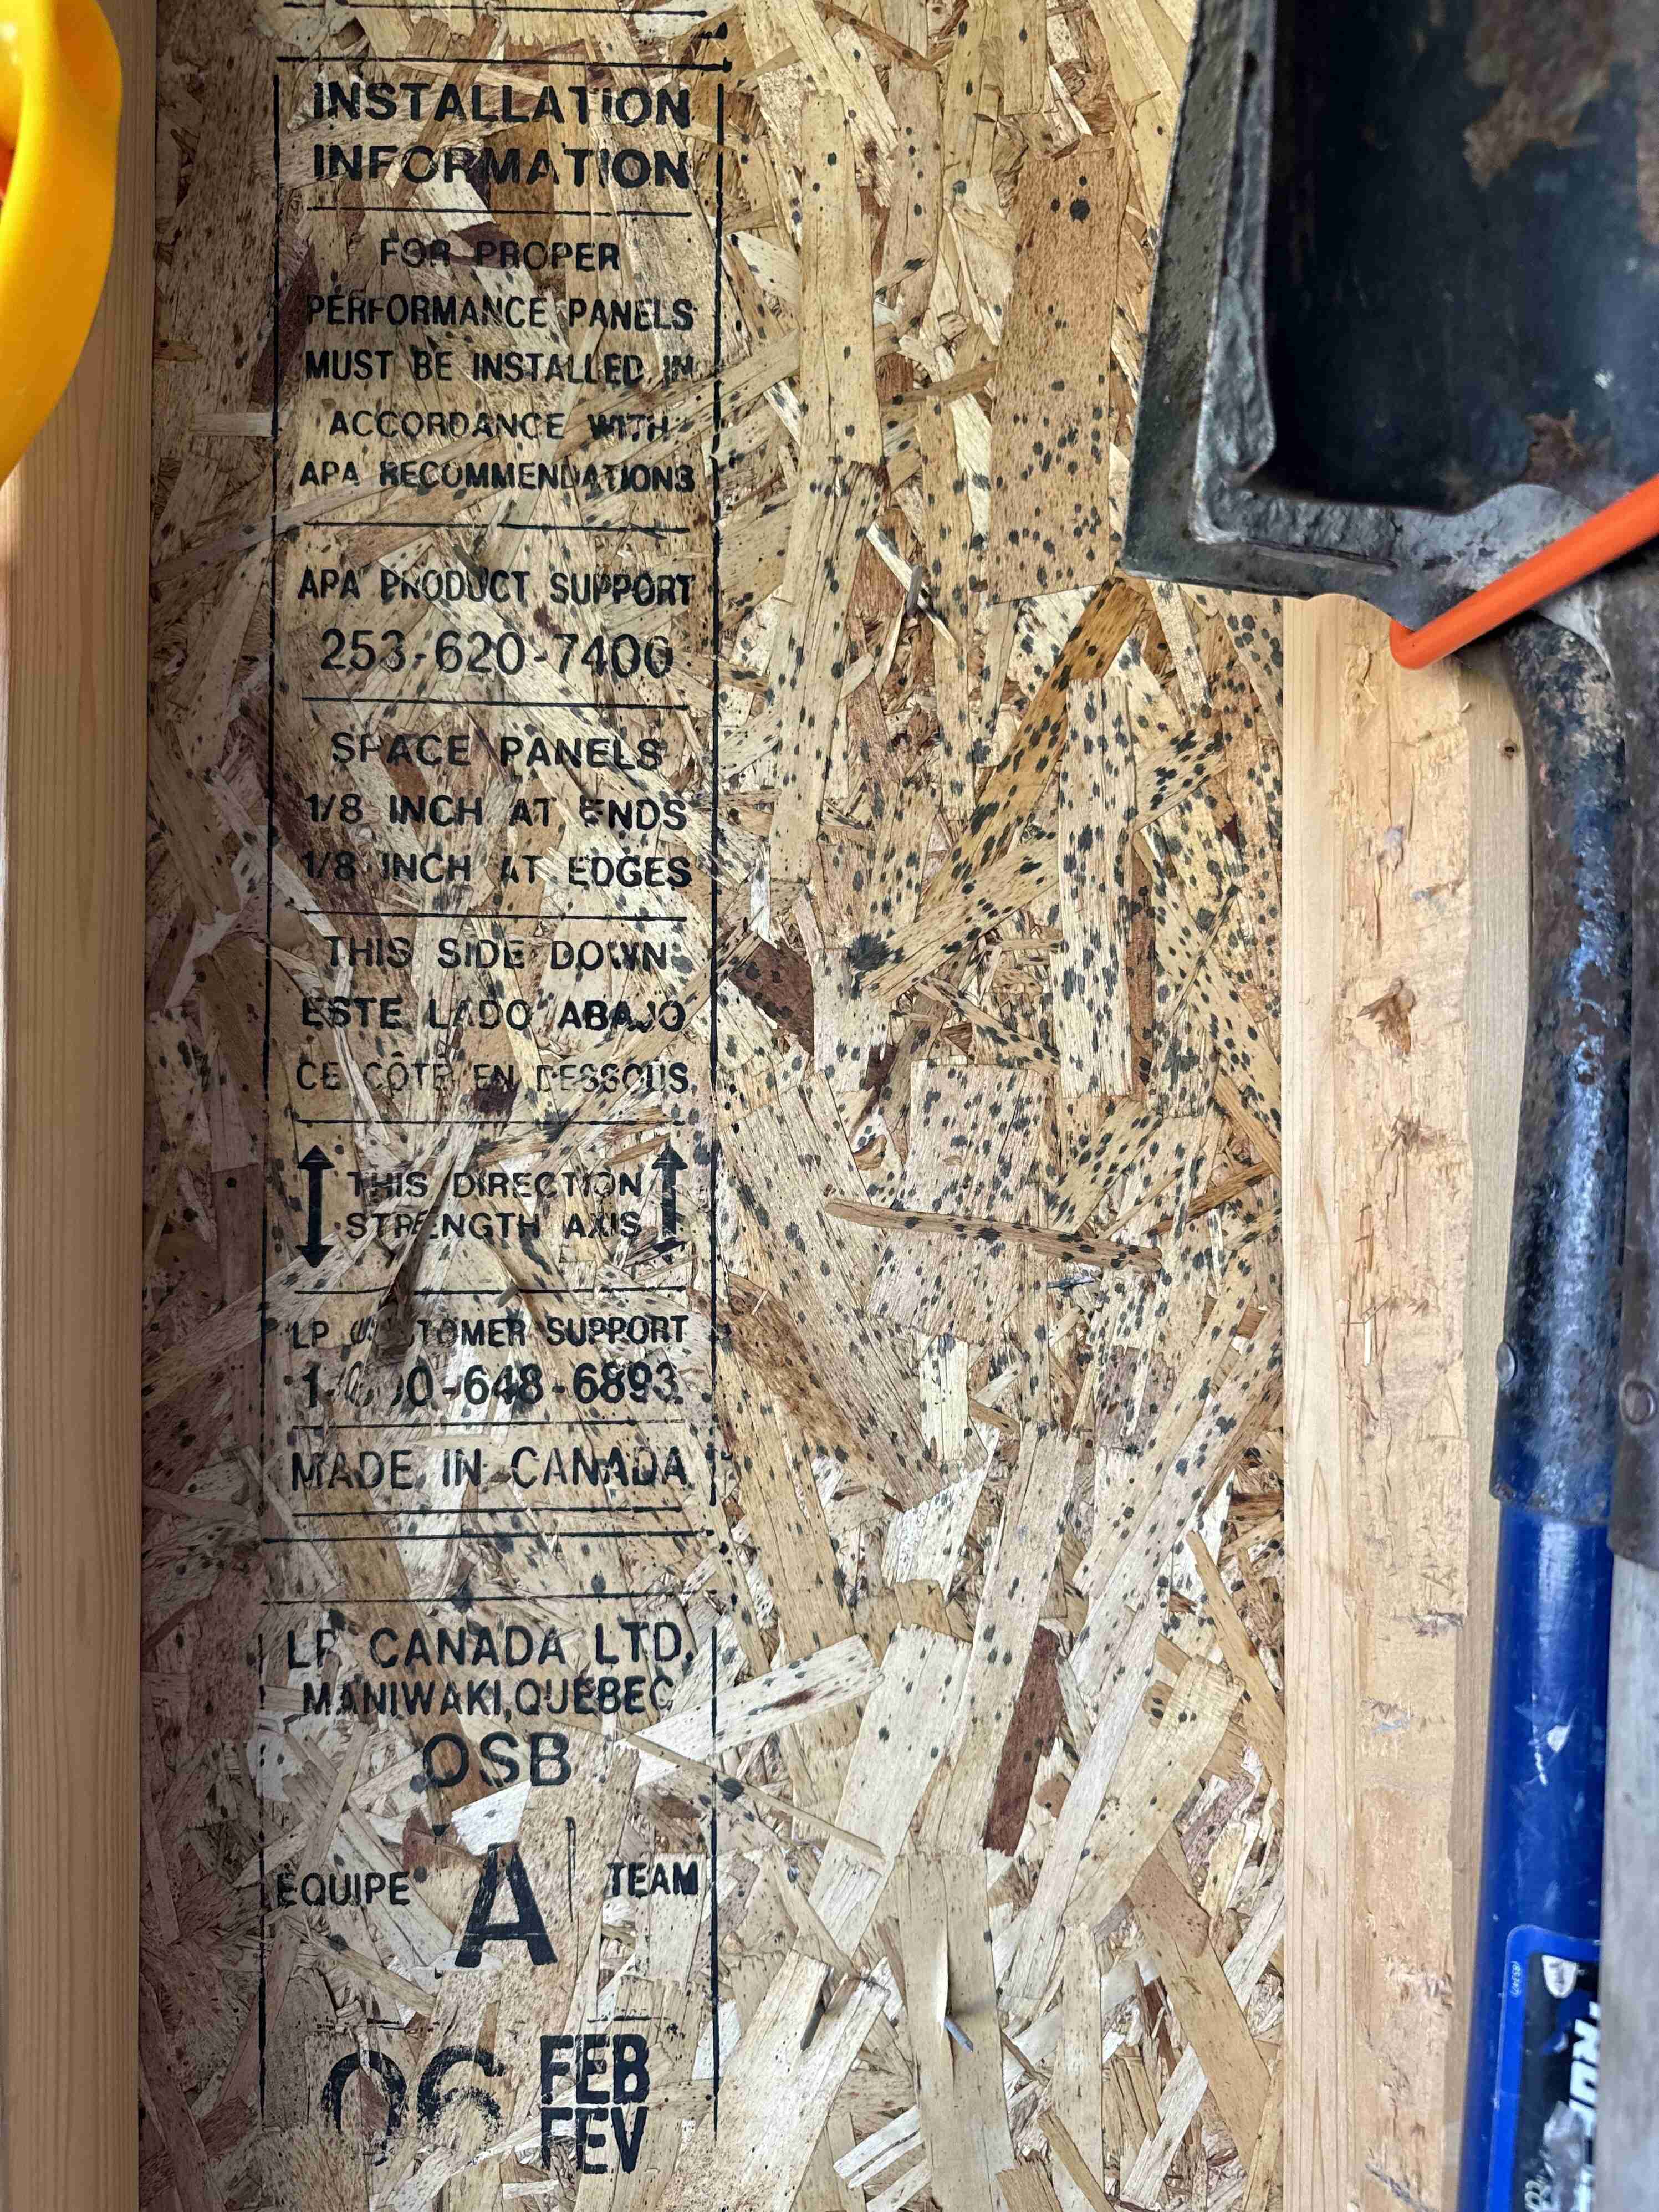 INSTALLATION
INFORMATION
FOR PROPER
PERFORMANCE PANELS
MUST BE INSTALLED IN
ACCORDANCE WITH
APA RECOMMENDATIONS
APA PRODUCT SUPPORT
253-620-7400
SPACE PANELS
1/8 INCH AT ENDS
1/8 INCH AT EDGES
THIS SIDE DOWN
ESTE LADO ABAJO
CE CÔTÉ EN DESSOUS
THIS DIRECTION
STRENGTH AXIS
LP CUSTOMER SUPPORT
648-6893
MADE IN CANADA
LP CANADA LTD.
MANIWAKI, QUÉBEC
OSB
ÉQUIPE A TEAM
06 FEB
FEV